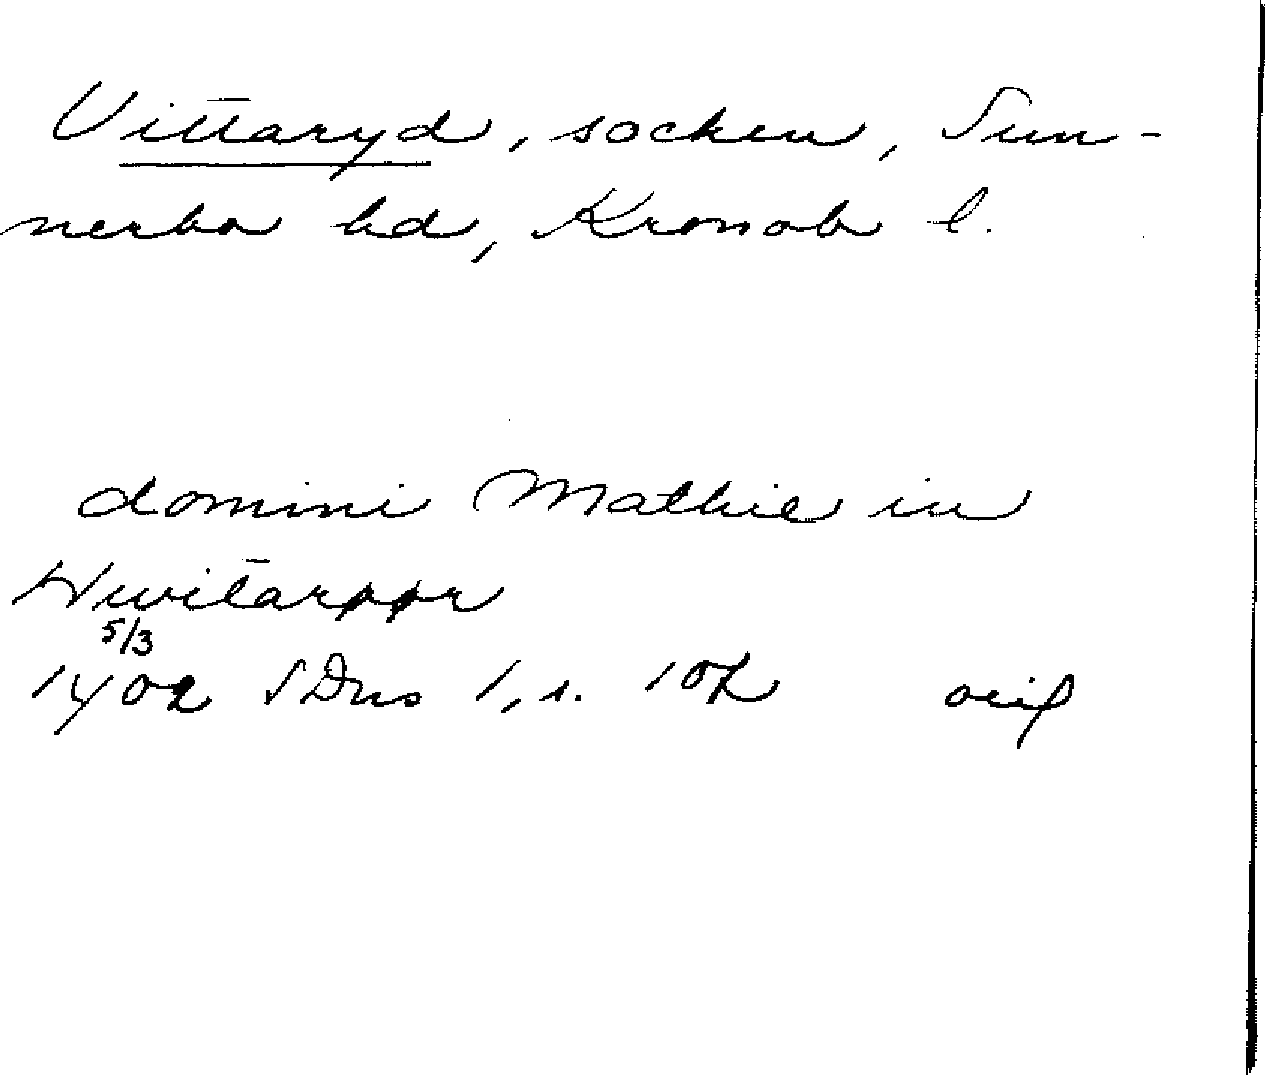 Vittaryd, socken, Sun-
nerbo hd, Kronob l.
domini Mathie in
Hwitarppr
5/3
1402 SDns 1, s. 102 orig